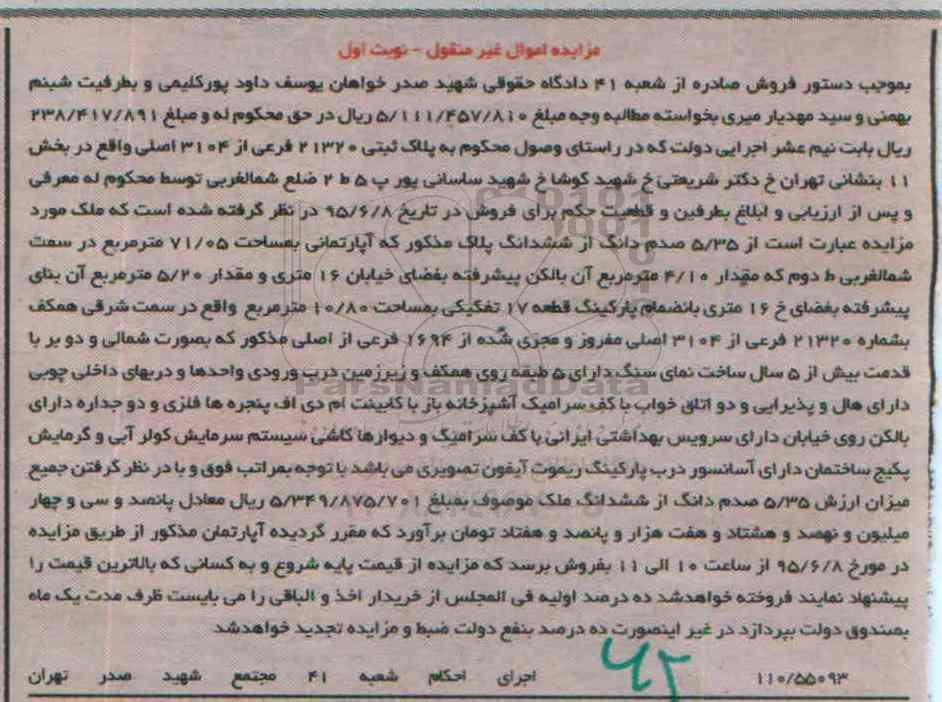 مزایده اموال غیر منقول - نوبت اول
بموجب دستور فروش صادره از شعبه ۴۱ دادگاه حقوقی شهید صدر خواهان یوسف داود پورکلیمی و بطرفیت شبنم
بهمنی و سید مهدیار میری بخواسته مطالبه وجه مبلغ ۵/۱۱۱/۴۵۷/۸۱۰ ریال در حق محکوم له و مبلغ ۲۳۸/۴۱۷/۸۹۱
ریال بابت نیم عشر اجرایی دولت که در راستای وصول محکوم به پلاک ثبتی ۲۱۳۲۰ فرعی از ۳۱۰۴ اصلی واقع در بخش
۱۱ بنشانی تهران خ دکتر شریعتی خ شهید کوشا خ شهید ساسانی پور پ ۵ ط ۲ ضلع شمالغربی توسط محکوم له معرفی
و پس از ارزیابی و ابلاغ بطرفین و قطعیت حکم برای فروش در تاریخ ۹۵/۶/۸ در نظر گرفته شده است که ملک مورد
مزایده عبارت است از ۵/۳۵ صدم دانگ از ششدانگ پلاک مذکور که آپارتمانی بمساحت ۷۱/۰۵ مترمربع در سمت
شمالغربی ط دوم که مقدار ۴/۱۰ مترمربع آن بالکن پیشرفته بفضای خیابان ۱۶ متری و مقدار ۵/۲۰ مترمربع آن بنای
پیشرفته بفضای خ ۱۶ متری بانضمام پارکینگ قطعه ۱۷ تفکیکی بمساحت ۱۰/۸۰ مترمربع واقع در سمت شرقی همکف
بشماره ۲۱۳۲۰ فرعی از ۳۱۰۴ اصلی مفروز و مجزی شده از ۱۶۹۴ فرعی از اصلی مذکور که بصورت شمالی و دو بر با
قدمت بیش از ۵ سال ساخت نمای سنگ دارای ۵ طبقه روی همکف و زیرزمین درب ورودی واحدها و دربهای داخلی چوبی
دارای هال و پذیرایی و دو اتاق خواب با کف سرامیک آشپزخانه باز با کابینت ام دی اف پنجره ها فلزی و دو جداره دارای
بالکن روی خیابان دارای سرویس بهداشتی ایرانی با کف سرامیک و دیوارها کاشی سیستم سرمایش کولر آبی و گرمایش
پکیج ساختمان دارای آسانسور درب پارکینگ ریموت آیفون تصویری می باشد با توجه بمراتب فوق و با در نظر گرفتن جمیع
میزان ارزش ۵/۳۵ صدم دانگ از ششدانگ ملک موصوف بمبلغ ۵/۳۴۹/۸۷۵/۷۰۱ ریال معادل پانصد و سی و چهار
میلیون و نهصد و هشتاد و هفت هزار و پانصد و هفتاد تومان برآورد که مقرر گردیده آپارتمان مذکور از طریق مزایده
در مورخ ۹۵/۶/۸ از ساعت ۱۰ الی ۱۱ بفروش برسد که مزایده از قیمت پایه شروع و به کسانی که بالاترین قیمت را
پیشنهاد نمایند فروخته خواهدشد ده درصد اولیه فی المجلس از خریدار اخذ و الباقی را می بایست ظرف مدت یک ماه
بصندوق دولت بپردازد در غیر اینصورت ده درصد بنفع دولت ضبط و مزایده تجدید خواهدشد
۱۱۰/۵۵۰۹۳ اجرای احکام شعبه ۴۱ مجتمع شهید صدر تهران
ParsNamadData